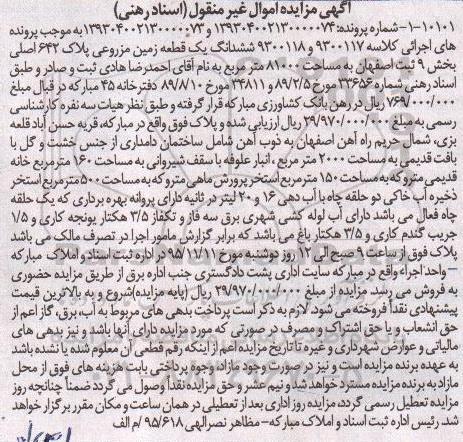 آگهی مزایده اموال غیر منقول (اسناد رهنی)
۱۰۱۰۱-۱-شماره پرونده: ۱۳۹۳۰۴۰۰۲۱۳۰۰۰۰۰۷۴ و ۱۳۹۳۰۴۰۰۲۱۳۰۰۰۰۰۷۳ به موجب پرونده
های اجرائی کلاسه ۹۳۰۰۱۱۷ و ۹۳۰۰۱۱۸ ششدانگ یک قطعه زمین مزروعی پلاک ۶۴۲ اصلی
بخش ۹ ثبت اصفهان به مساحت ۸۱۰۰۰ متر مربع به نام آقای احمدرضا هادی ثبت و صادر و طبق
اسناد رهنی شماره ۳۳۶۵۶ مورخ ۸۹/۲/۵ و ۳۴۸۱۱ مورخ ۸۹/۸/۱۰ دفترخانه ۴۵ مبارکه در قبال مبلغ
۷۶۹/۰۰۰/۰۰۰ ریال در رهن بانک کشاورزی مبارکه قرار گرفته و طبق نظر هیات سه نفره کارشناسی
رسمی به مبلغ ۲۹/۹۷۰/۰۰۰/۰۰۰ ریال ارزیابی شده و پلاک فوق واقع در مبارکه، قریه حسن آباد قلعه
بزی، شمال حریم راه آهن اصفهان به ذوب آهن شامل ساختمان دامداری از جنس خشت و گل با
بافت قدیمی به مساحت ۲۰۰۰ متر مربع، انبار علوفه با سقف شیروانی به مساحت ۱۶۰ مترمربع خانه
قدیمی متروکه به مساحت ۱۵۰ مترمربع استخر پرورش ماهی متروکه به مساحت ۵۰۰ مترمربع استخر
ذخیره آب خاکی دو حلقه چاه با آب دهی ۱۶ و ۲۰ لیتر در ثانیه دارای پروانه بهره برداری که یک حلقه
چاه فعال می باشد دارای آب لوله کشی شهری برق سه فاز و تکفاز ۳/۵ هکتار یونجه کاری و ۱/۵
جریب گندم کاری و ۳/۵ هکتار باغ می باشد که برابر گزارش مامور اجرا در تصرف مالک می باشد
پلاک فوق از ساعت ۹ صبح الی ۱۲ روز دوشنبه مورخ ۹۵/۷/۱۲ در اداره ثبت اسناد و املاک مبارکه
– واحد اجرا، واقع در مبارکه سایت اداری پشت دادگستری جنب اداره برق از طریق مزایده حضوری
به فروش می رسد. مزایده از مبلغ ۲۹/۹۷۰/۰۰۰/۰۰۰ ریال (پایه مزایده) شروع و به بالاترین قیمت
پیشنهادی نقداً فروخته می شود. لازم به ذکر است پرداخت بدهی های مربوط به آب، برق، گاز اعم از
حق انشعاب و یا حق اشتراک و مصرف در صورتی که مورد مزایده دارای آنها باشد و نیز بدهی های
مالیاتی و عوارض شهرداری و غیره تا تاریخ مزایده اعم از اینکه رقم قطعی آن معلوم شده یا نشده باشد
به عهده برنده مزایده است و نیز در صورت وجود مازاد وجوه پرداختی بابت هزینه های فوق از محل
مازاد به برنده مزایده مسترد خواهد شد و نیم عشر و حق مزایده نقداً وصول می گردد ضمناً چنانچه روز
مزایده تعطیل رسمی گردد، مزایده روز اداری بعد از تعطیلی در همان ساعت و مکان مقرر برگزار خواهد
شد. رئیس اداره ثبت اسناد و املاک مبارکه – مظاهر نصرالهی ۹۵/۶۱۸ /م الف